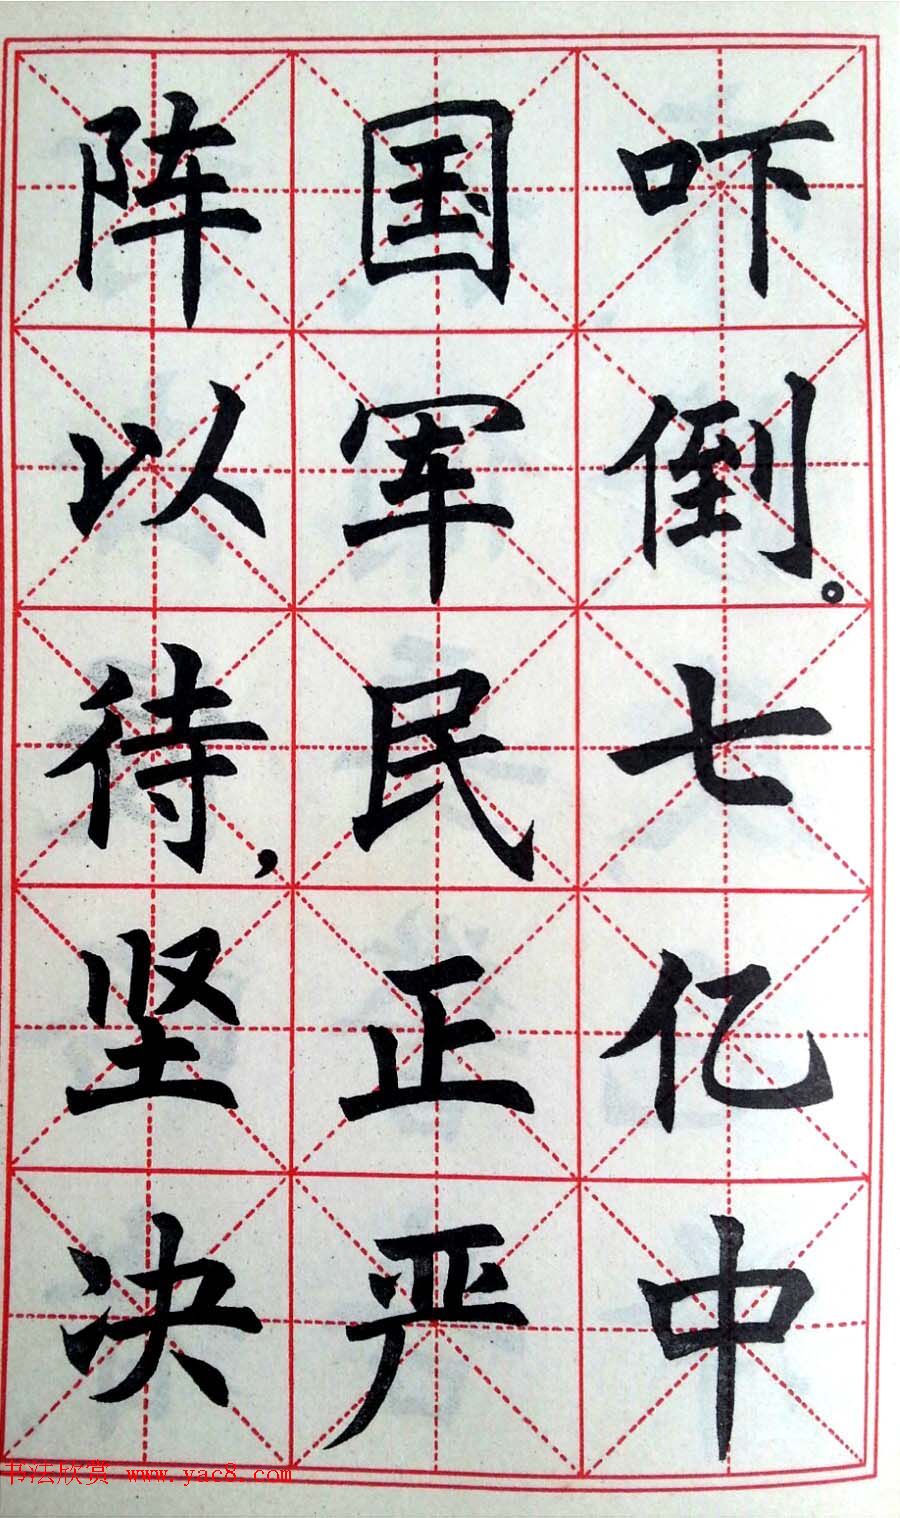 吓倒。七亿中
国军民正严
阵以待，坚决
书法欣赏 www.yac8.com